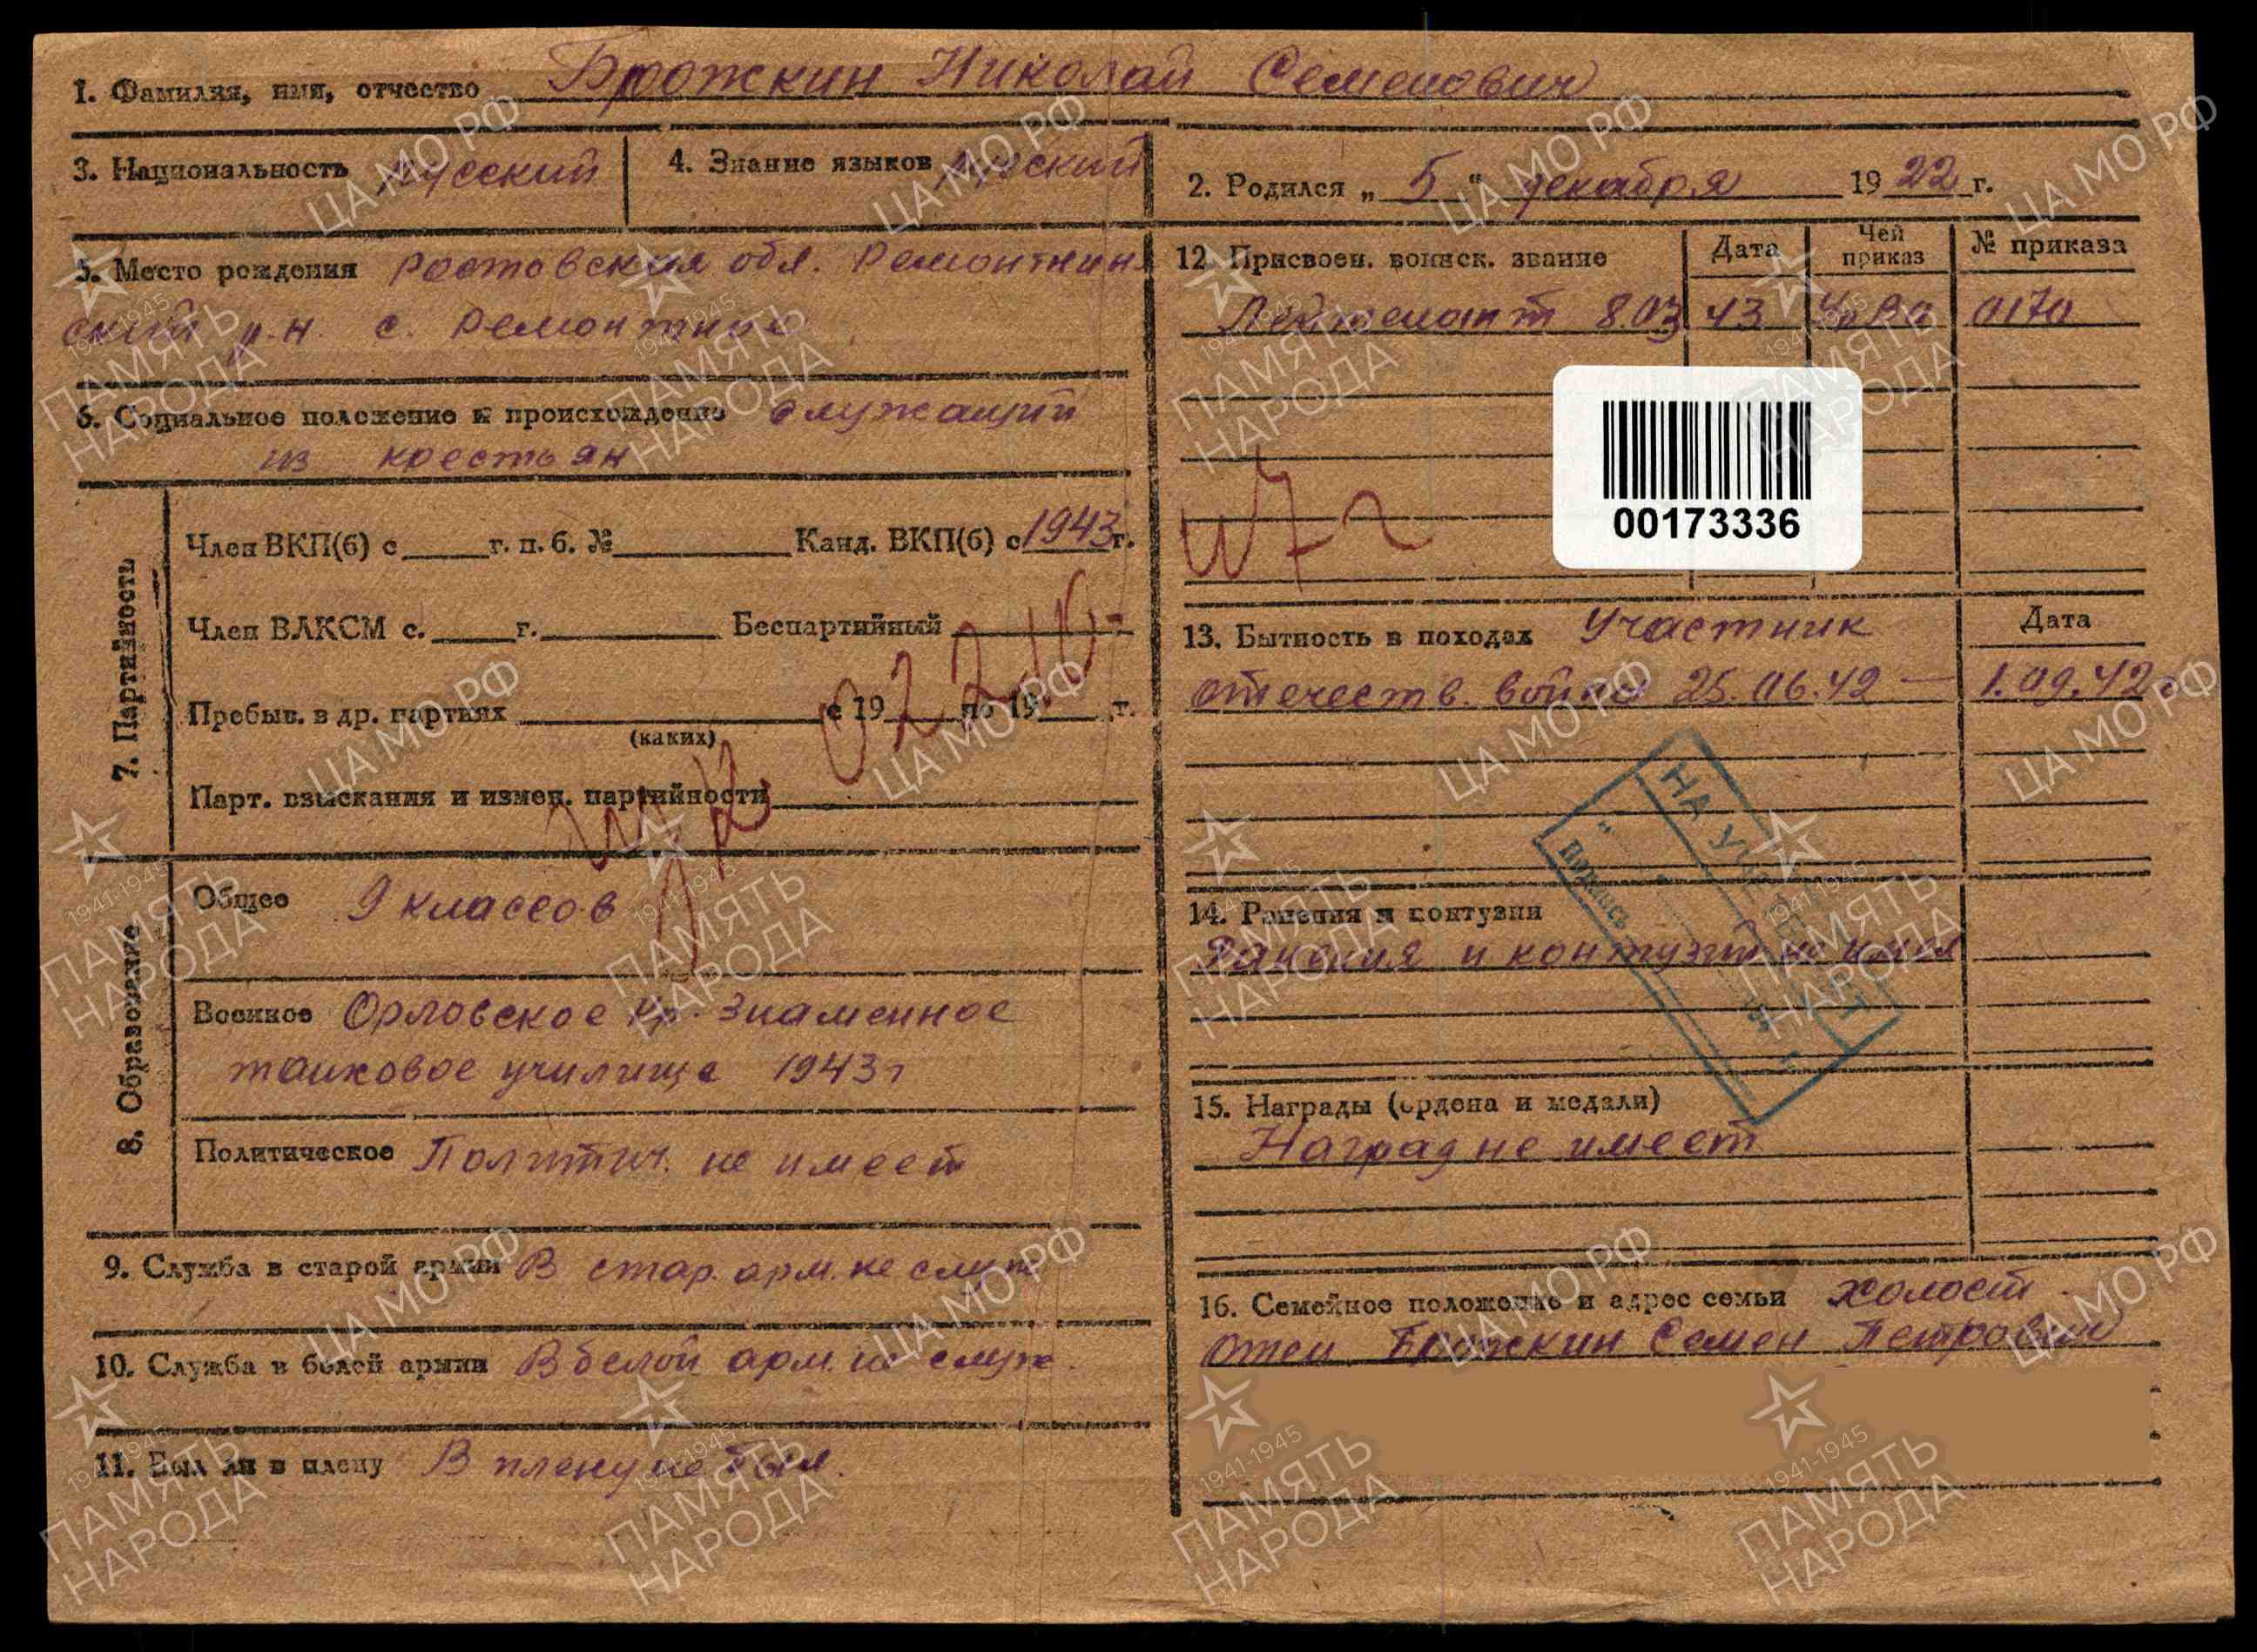 1. Фамилия, имя, отчество Брожкин Николай Семенович
3. Национальность русский
4. Знание языков русский
2. Родился „ 5 “ декабря 1922 г.
5. Место рождения Ростовская обл. Ремонтнин
ский р-н. с. Ремонтное
6. Социальное положение и происхождение служащий
из крестьян
7. Партийность
Член ВКП(б) с г. п. б. № Канд. ВКП(б) с 1943 г.
Член ВЛКСМ с. г. Беспартийный
Пребыв. в др. партиях с 19 по 19 г.
(каких)
Парт. взыскания и измен. партийности
8. Образование
Общее 9 классов
Военное Орловское Кр. Знаменное
танковое училище 1943 г
Политическое Политич. не имеет
9. Служба в старой армии В стар. арм. не служ
10. Служба в белой армии В белой арм. не служ.
11. Был ли в плену В плену не был.
12. Присвоен. воинск. звание Дата Чей приказ № приказа
Лейтенант 8.03 43 0170
00173336
13. Бытность в походах Участник Дата
отечеств. войны 25.06.42 — 1.09.42
НА УЧЕТ
Подпись
14. Ранения и контузии
Ранения и контузий не имел
15. Награды (ордена и медали)
Наград не имеет
16. Семейное положение и адрес семьи холост
отец Брожкин Семен Петрович
ЦА МО РФ
1941-1945
ПАМЯТЬ
НАРОДА